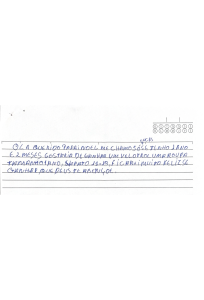 OLA QUERIDO PAPAI NOEL ME CHAMO JOSE TENHO 1 ANO
E 2 MESES GOSTARIA DE GANHAR UM VELOTROL UMA ROUPA
TAMANHO 1 ANO, SAPATO 22-23, FICAREI MUITO FELIZ SE
GANHAR QUE DEUS TE ABENÇOE.